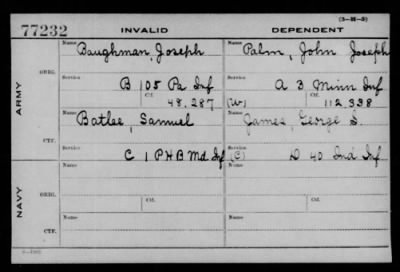 (3-M-3)
77232 INVALID DEPENDENT
Name Name
Baughman, Joseph Palm, John Joseph
ORIG. Service Service
B 105 Pa Inf A 3 Minn Inf
Ctf. Ctf.
48,287 (W) 112,338
ARMY
Name Name
Batlee, Samuel James, George S.
CTF. Service Service
C 1 P H B Md Inf (C) D 40 Ind Inf
Name Name
ORIG. Service Service
Ctf. Ctf.
NAVY
Name Name
CTF. Service Service